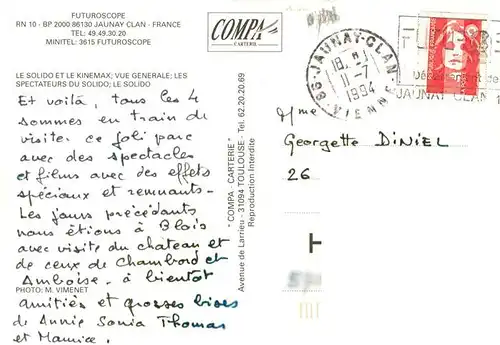 FUTUROSCOPE
RN 10 - BP 2000 86130 JAUNAY CLAN - FRANCE
TEL: 49.49.30.20
MINITEL: 3615 FUTUROSCOPE
LE SOLIDO ET LE KINEMAX; VUE GENERALE; LES
SPECTATEURS DU SOLIDO; LE SOLIDO
Et voilà, tous les 4
sommes en train de
visite. ce joli parc
avec des spectacles
et films avec des effets
spéciaux et remuants.
Les jours précédents
nous étions à Blois
avec visite du chateau et
de ceux de Chambord et
Amboise. à bientot
PHOTO: M. VIMENET
amitiés et grosses bises
de Annie Sonia Thomas
et Maurice.
COMPA
CARTERIE
" COMPA - CARTERIE "
Avenue de Larrieu - 31094 TOULOUSE - Tel. 62.20.20.69
Reproduction Interdite
86-JAUNAY-CLAN
18 H
11-7
1994
VIENNE
Département de
JAUNAY CLAN
Mme
Georgette DINIEL
26